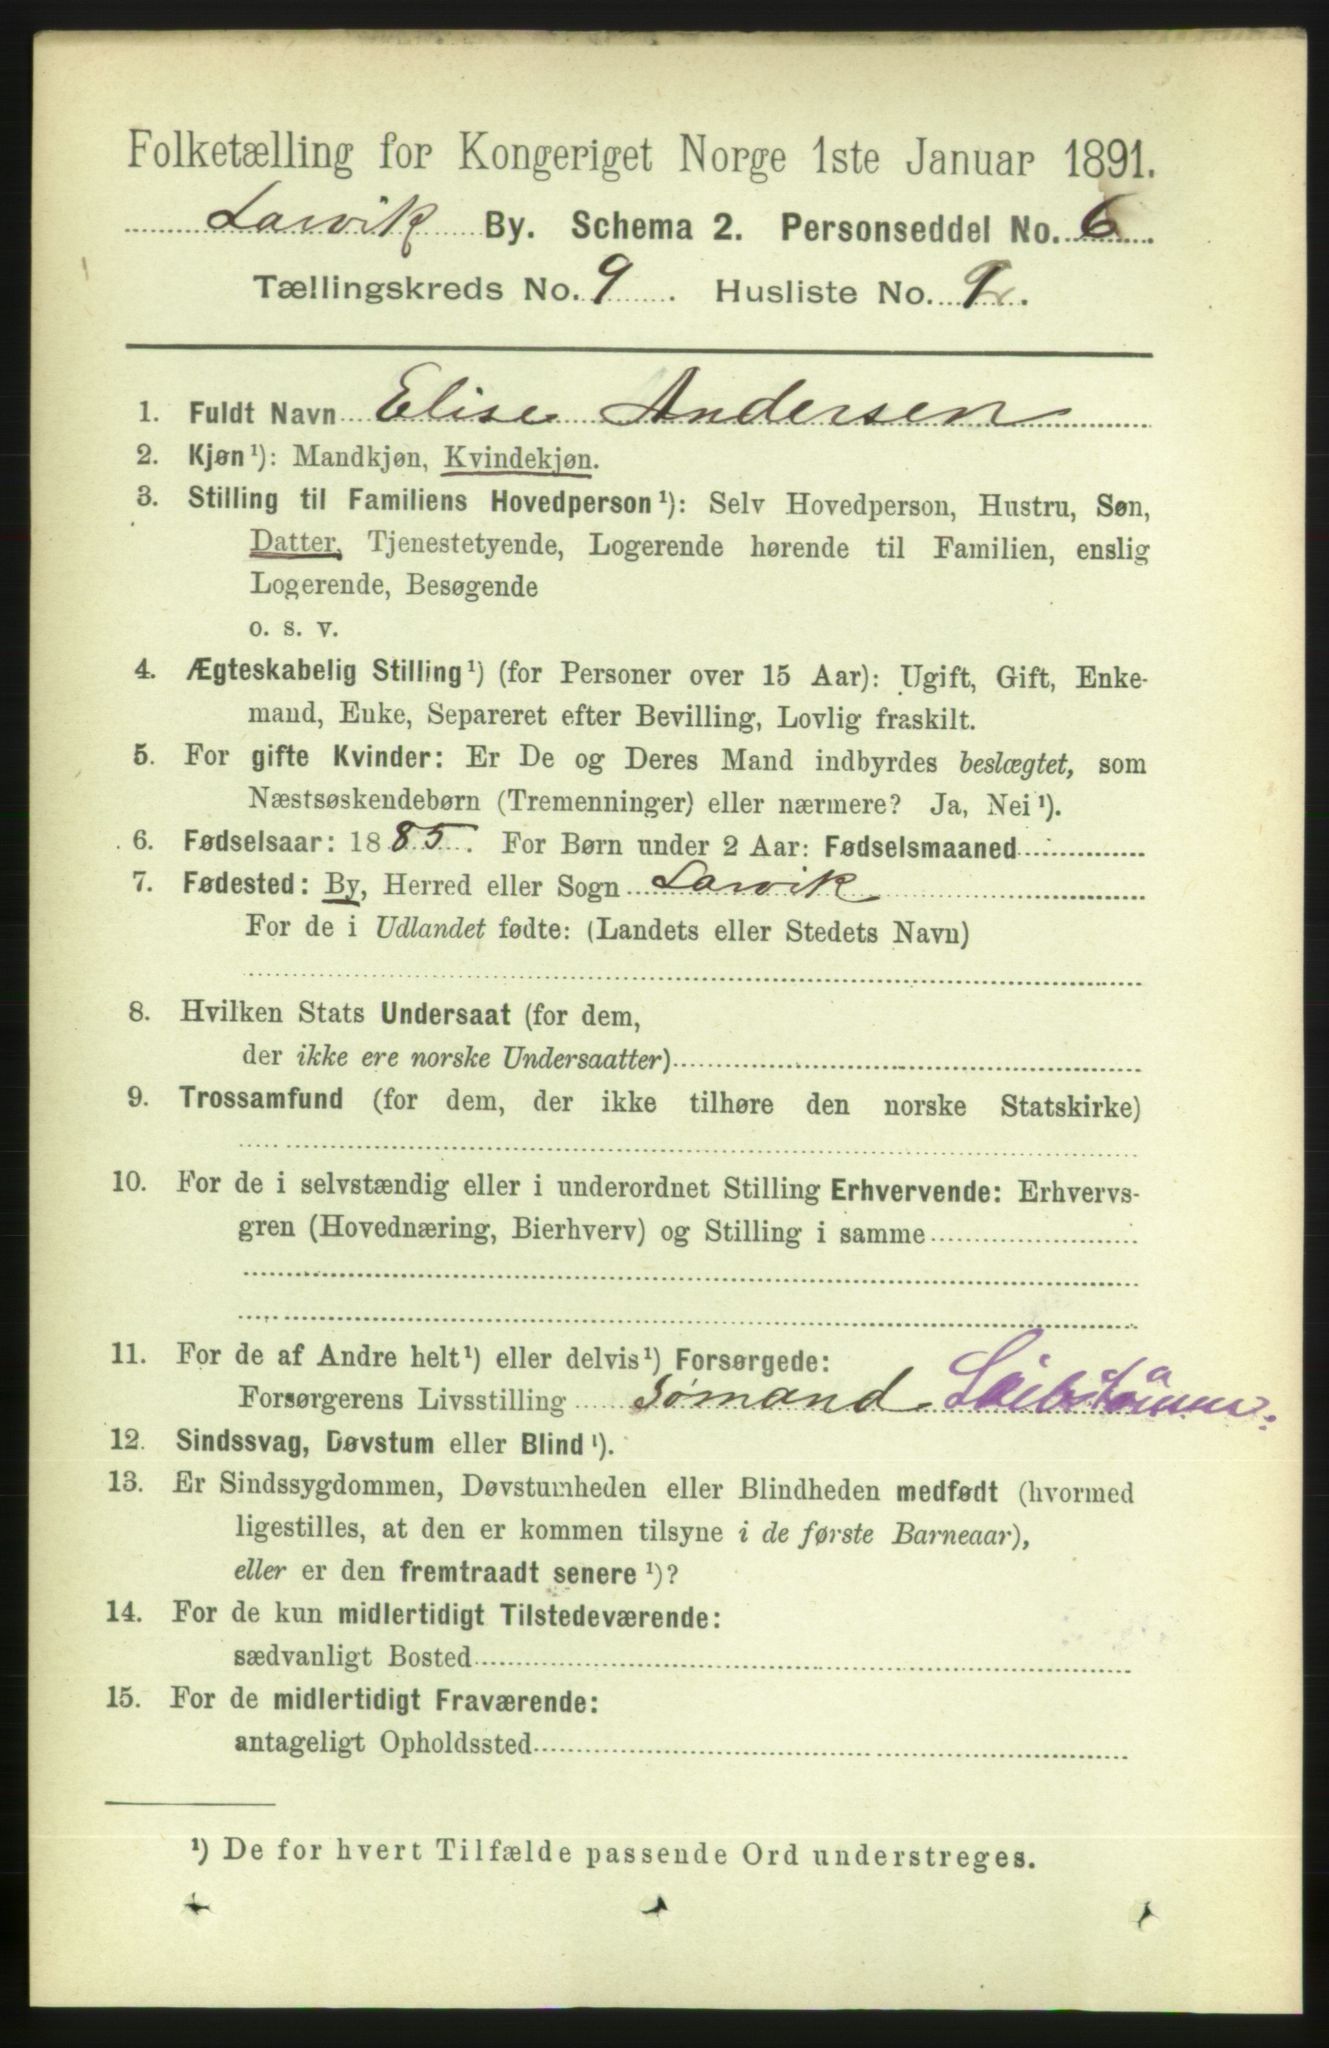 Folketælling for Kongeriget Norge 1ste Januar 1891.
Larvik By. Schema 2. Personseddel No. 6
Tællingskreds No. 9. Husliste No. 9.
1. Fuldt Navn Elise Andersen
2. Kjøn¹): Mandkjøn, Kvindekjøn.
3. Stilling til Familiens Hovedperson¹): Selv Hovedperson, Hustru, Søn,
Datter, Tjenestetyende, Logerende hørende til Familien, enslig
Logerende, Besøgende
o. s. v.
4. Ægteskabelig Stilling¹) (for Personer over 15 Aar): Ugift, Gift, Enke-
mand, Enke, Separeret efter Bevilling, Lovlig fraskilt.
5. For gifte Kvinder: Er De og Deres Mand indbyrdes beslægtet, som
Næstsøskendebørn (Tremenninger) eller nærmere? Ja, Nei¹).
6. Fødselsaar: 1885. For Børn under 2 Aar: Fødselsmaaned
7. Fødested: By, Herred eller Sogn Larvik
For de i Udlandet fødte: (Landets eller Stedets Navn)
8. Hvilken Stats Undersaat (for dem,
der ikke ere norske Undersaatter)
9. Trossamfund (for dem, der ikke tilhøre den norske Statskirke)
10. For de i selvstændig eller i underordnet Stilling Erhvervende: Erhvervs-
gren (Hovednæring, Bierhverv) og Stilling i samme
11. For de af Andre helt¹) eller delvis¹) Forsørgede:
Forsørgerens Livsstilling Sømand
12. Sindssvag, Døvstum eller Blind¹).
13. Er Sindssygdommen, Døvstumheden eller Blindheden medfødt (hvormed
ligestilles, at den er kommen tilsyne i de første Barneaar),
eller er den fremtraadt senere¹)?
14. For de kun midlertidigt Tilstedeværende:
sædvanligt Bosted
15. For de midlertidigt Fraværende:
antageligt Opholdssted
¹) De for hvert Tilfælde passende Ord understreges.